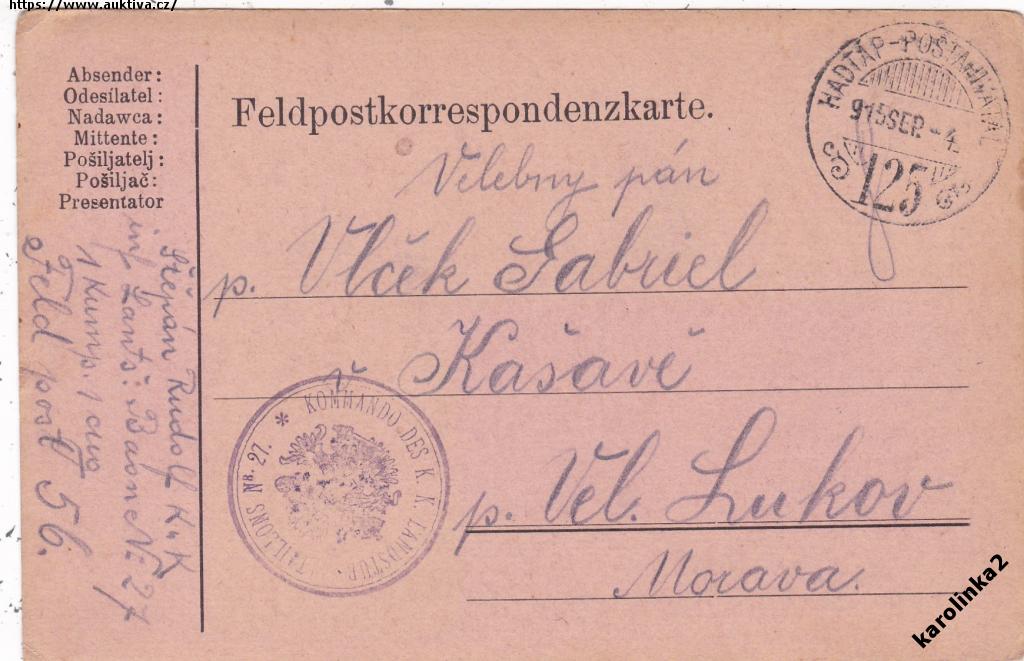 https://www.auktiva.cz/
Absender:
Odesílatel:
Nadawca:
Mittente:
Pošiljatelj:
Pošiljač:
Presentator
Feldpostkorrespondenzkarte.
HADTÁP-POSTAHIVATAL
915 SEP. -4.
125
Velebny pán
p. Vlček Gabriel
v Kašavě
p. Vel. Lukov
Morava.
Štěpán Rudolf K u K
inf. Lants: Baone N: 27
1 Kump. 1 cug
Feld post 56.
* KOMMANDO DES K. K. LANDSTUR TAILLONS Nr. 27.
karolinka2